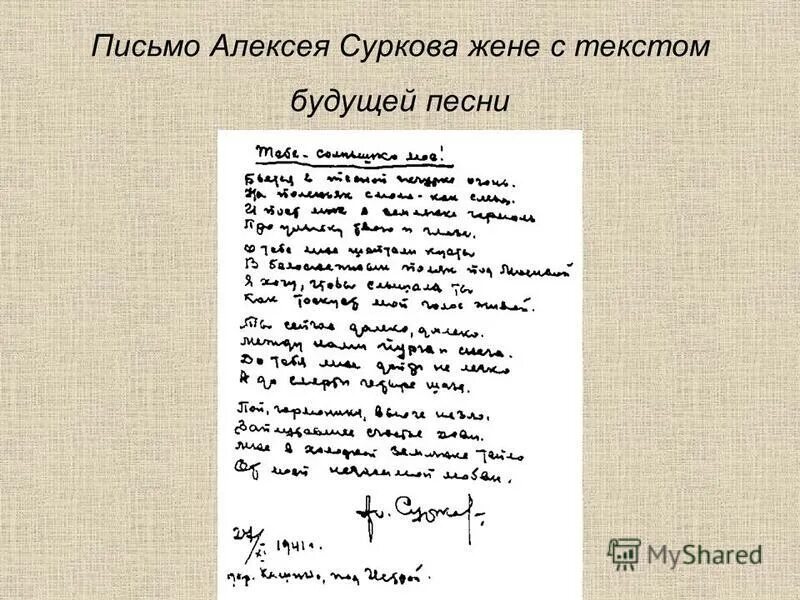 Письмо Алексея Суркова жене с текстом
будущей песни
Тебе - солнышко мое!
Бьется в тесной печурке огонь.
На поленьях смола - как слеза.
И поет мне в землянке гармонь
Про улыбку твою и глаза.
О тебе мне шептали кусты
В белоснежных полях под Москвой
Я хочу, чтобы слышала ты
Как тоскует мой голос живой.
Ты сейчас далеко, далеко.
Между нами пурга и снега.
До тебя мне дойти не легко
А до смерти четыре шага.
Пой, гармоника, вьюге назло.
Заплутавшее счастье зови.
Мне в холодной землянке тепло
От моей негасимой любви.
Ал. Сурков
27/XI 1941 г.
дер. Кашино, под Истрой.
MyShared